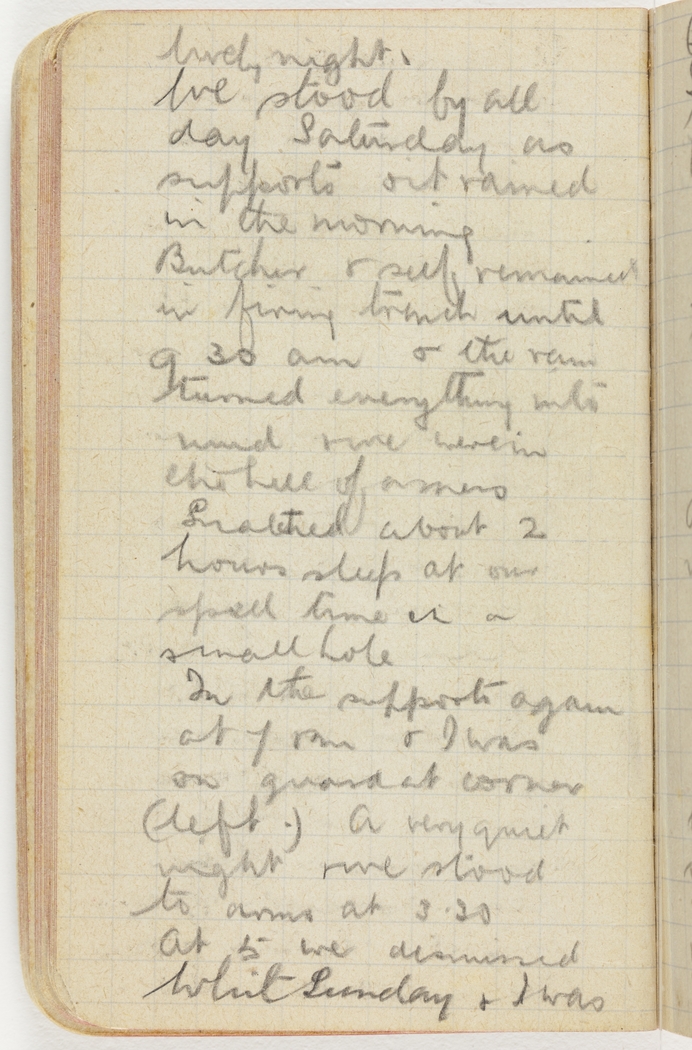 lively night.
We stood by all
day Saturday as
supports & it rained
in the morning
Butcher & self remained
in firing trench until
9 30 am & the rain
turned everything into
mud & we were in
the hell of a mess
Snatched about 2
hours sleep at our
spell time in a
small hole
In the supports again
at 7 pm & I was
on guard at corner
(left.) A very quiet
night & we stood
to arms at 3.30
At 5 we dismissed
Whit Sunday & I was